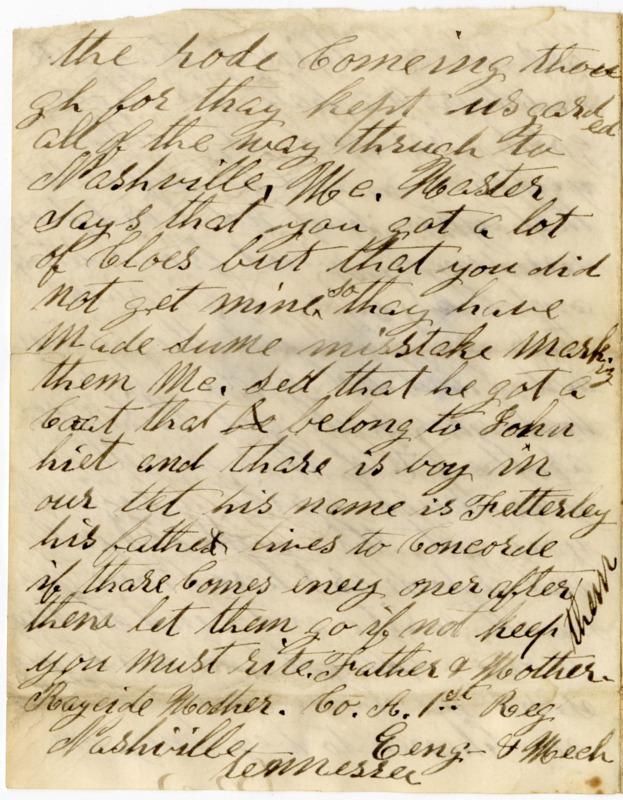 the rode Comeing thou
gh for thay kept us gard ed
all of the way thruch to
Nashville, Mc. Naster
says that you got a lot
of Cloes but that you did
not get mine so thay have
Made sume misstake Mark ing
them Mc. sed that he got a
Coat that belong to John
hiet and thare is boy in
our tet his name is Fetterley
his father lives to Concorde
if thare Comes eney oner after
them let them go if not keep them
you must rite. Father & Mother.
Mother. Co. A. 1st Reg
Nashville Eeng & Mech
tennessee